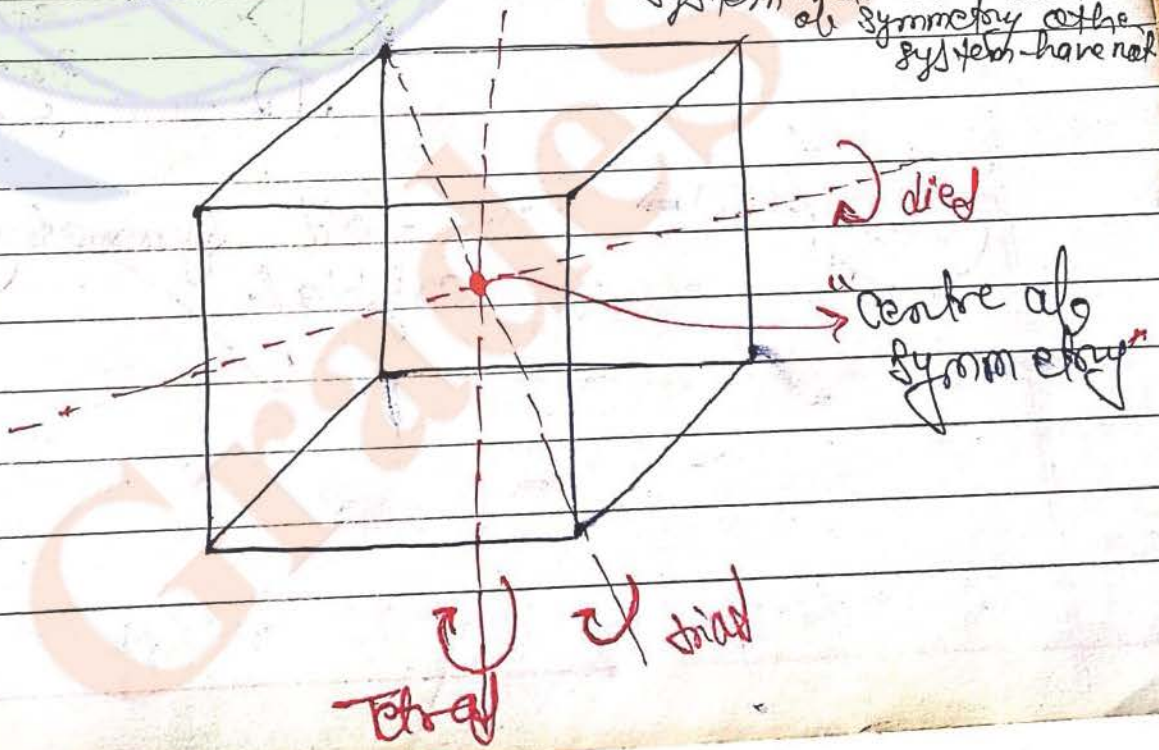 system
of symmetry othe
system have not
died
"centre of
symmetry"
triad
Tetrad
Grades